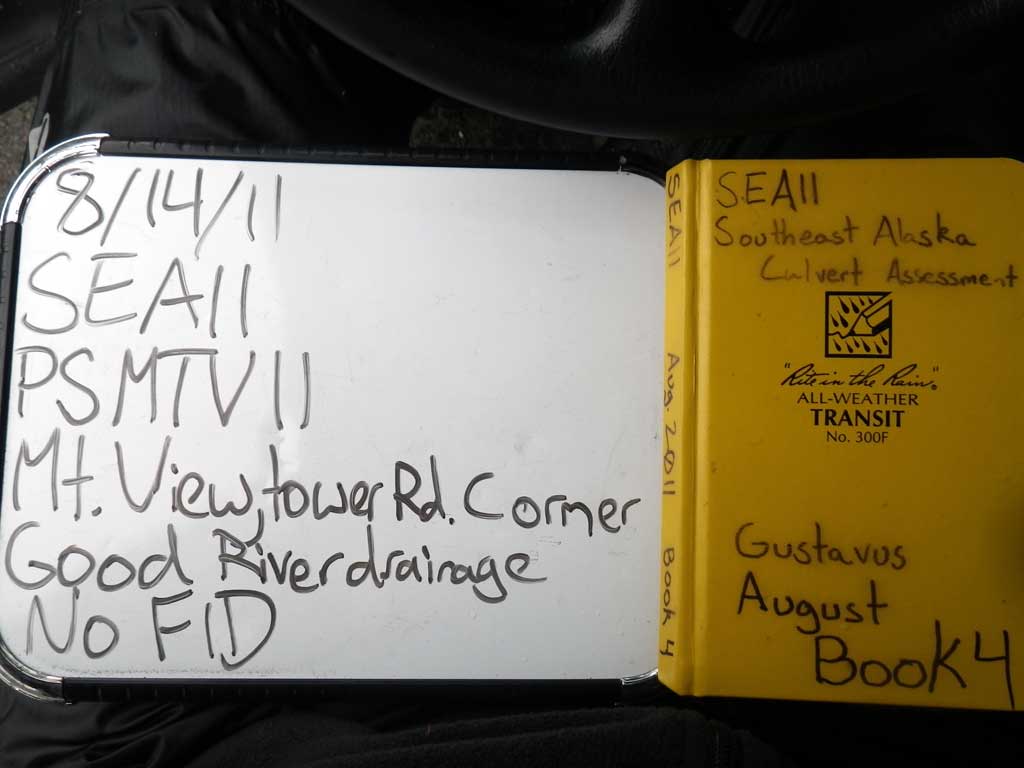 8/14/11
SEA11
PSMTV11
Mt. View, tower Rd. Corner
Good River drainage
No FID
SEA11 Aug. 2011 Book 4
SEA11
Southeast Alaska
Culvert Assessment
"Rite in the Rain"
ALL-WEATHER
TRANSIT
No. 300F
Gustavus
August
Book 4